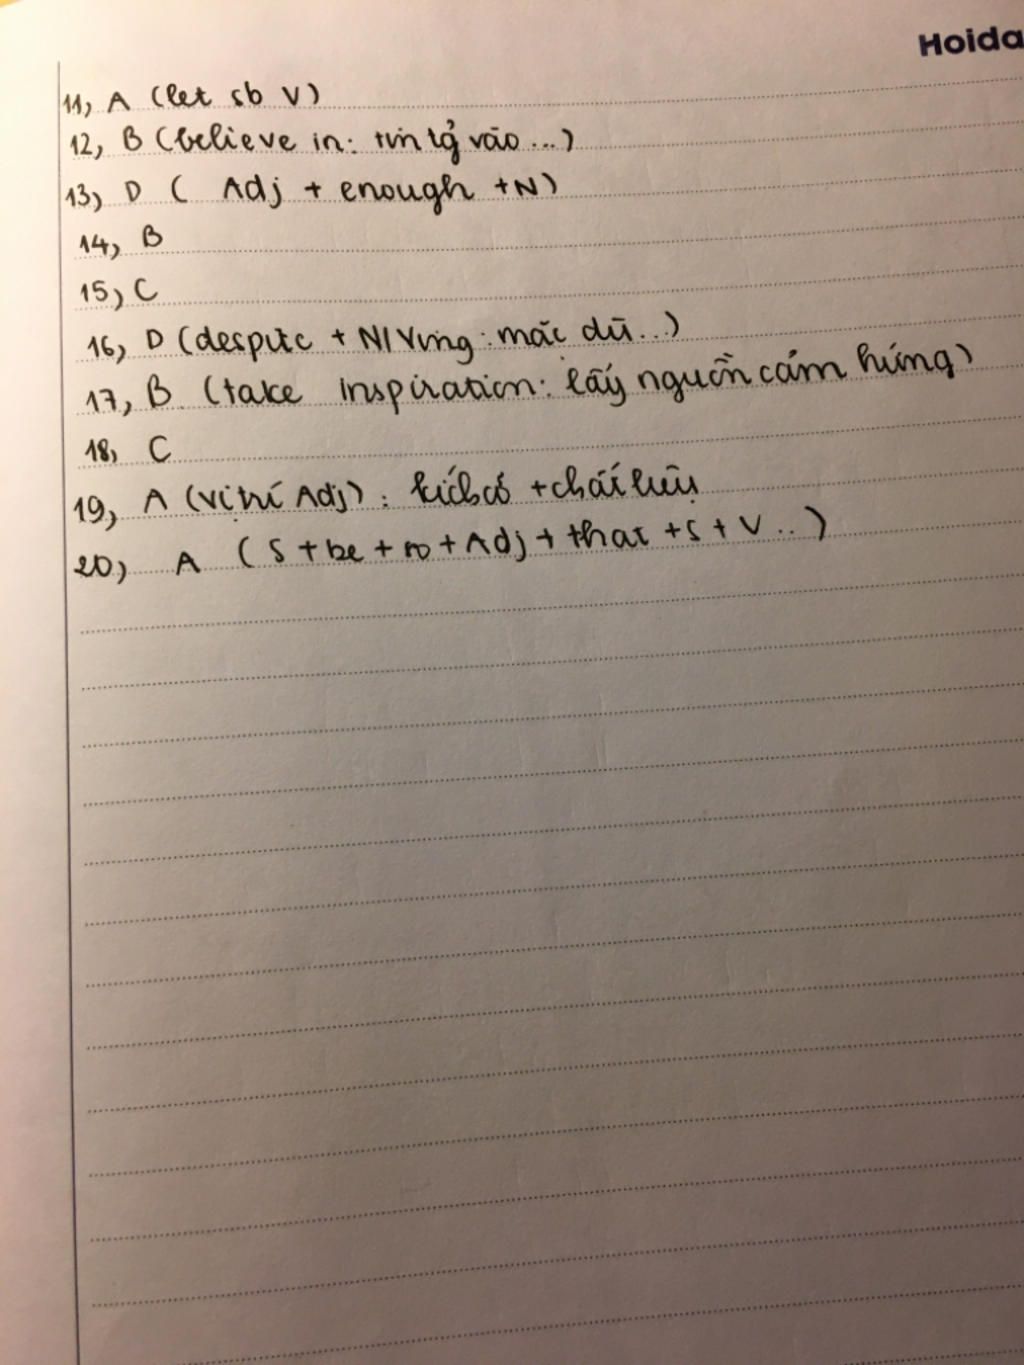 Hoida
11, A (let sb V)
12, B (believe in: tin tg vào ...)
13, D ( Adj + enough + N)
14, B
15, C
16, D (despite + N/Ving : mặc dù ...)
17, B (take inspiration: lấy nguồn cảm hứng)
18, C
19, A (vị trí Adj) : kích cỡ + chất liệu
20, A ( S + be + so + Adj + that + S + V ..)